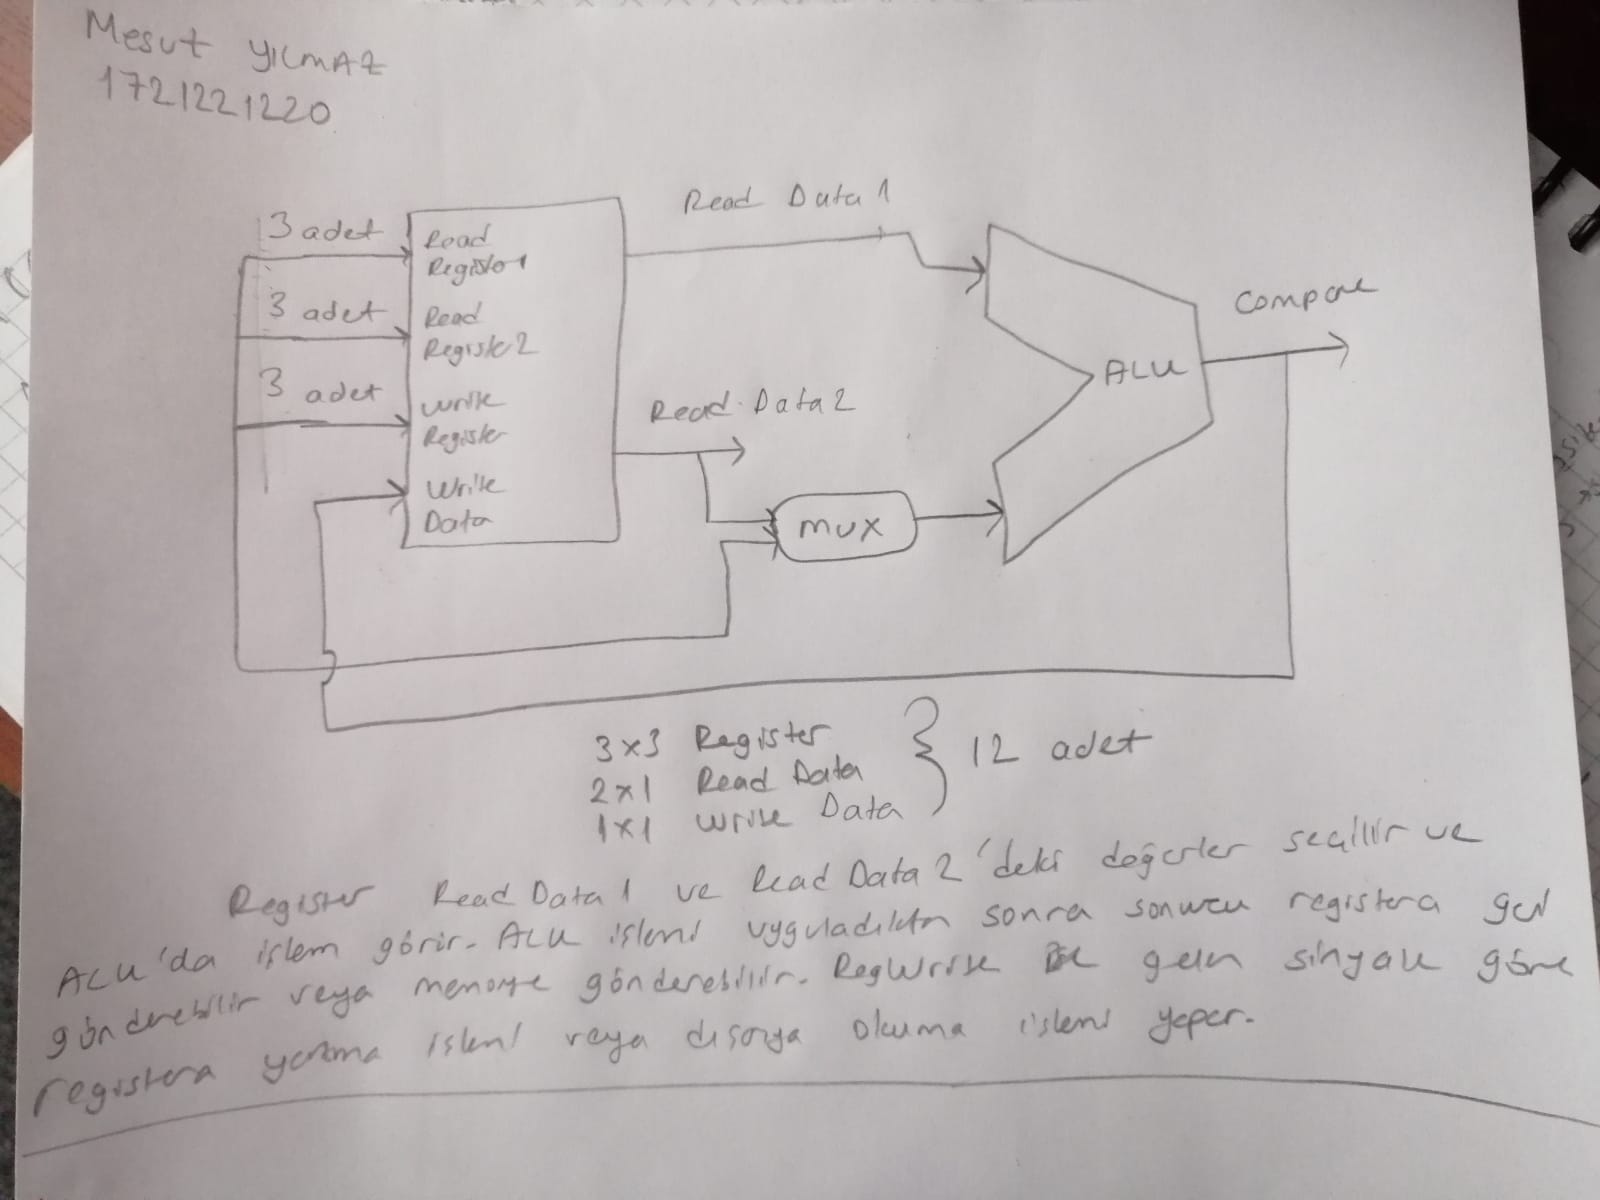 Mesut YILMAZ
1721221220
Read Data 1
3 adet
Read
Register1
3 adet
Read
Register2
3 adet
Write
Register
Write
Data
Read Data 2
MUX
ALU
Compare
3x3 Register
2x1 Read Data
1x1 Write Data
12 adet
Register Read Data 1 ve Read Data 2'deki değerler seçilir ve
ALU'da işlem görür. ALU işlemi uyguladıktan sonra sonucu registera geri
gönderebilir veya memorye gönderebilir. RegWrite gelen sinyale göre
registera yazma işlemi veya dışarıya okuma işlemi yapar.